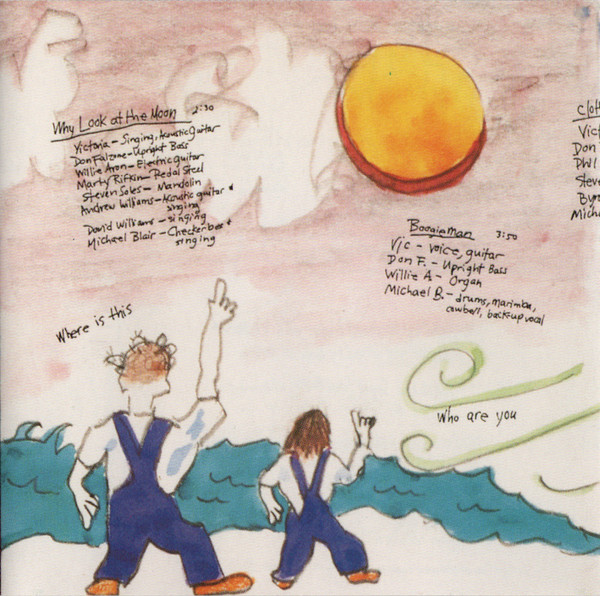 Why Look at the Moon 2:30
Victoria - Singing, Acoustic Guitar
Don Falzone - Upright Bass
Willie Aron - Electric guitar
Marty Rifkin - Pedal Steel
Steven Soles - Mandolin
Andrew Williams - Acoustic guitar +
singing
David Williams - singing
Michael Blair - Checkerbox +
singing
Boogieman 3:50
Vic - voice, guitar
Don F. - Upright Bass
Willie A - Organ
Michael B. - drums, marimba,
cowbell, back-up vocal
Clot
Vict
Don
Phil
Steve
Byro
Mich
Where is this
Who are you